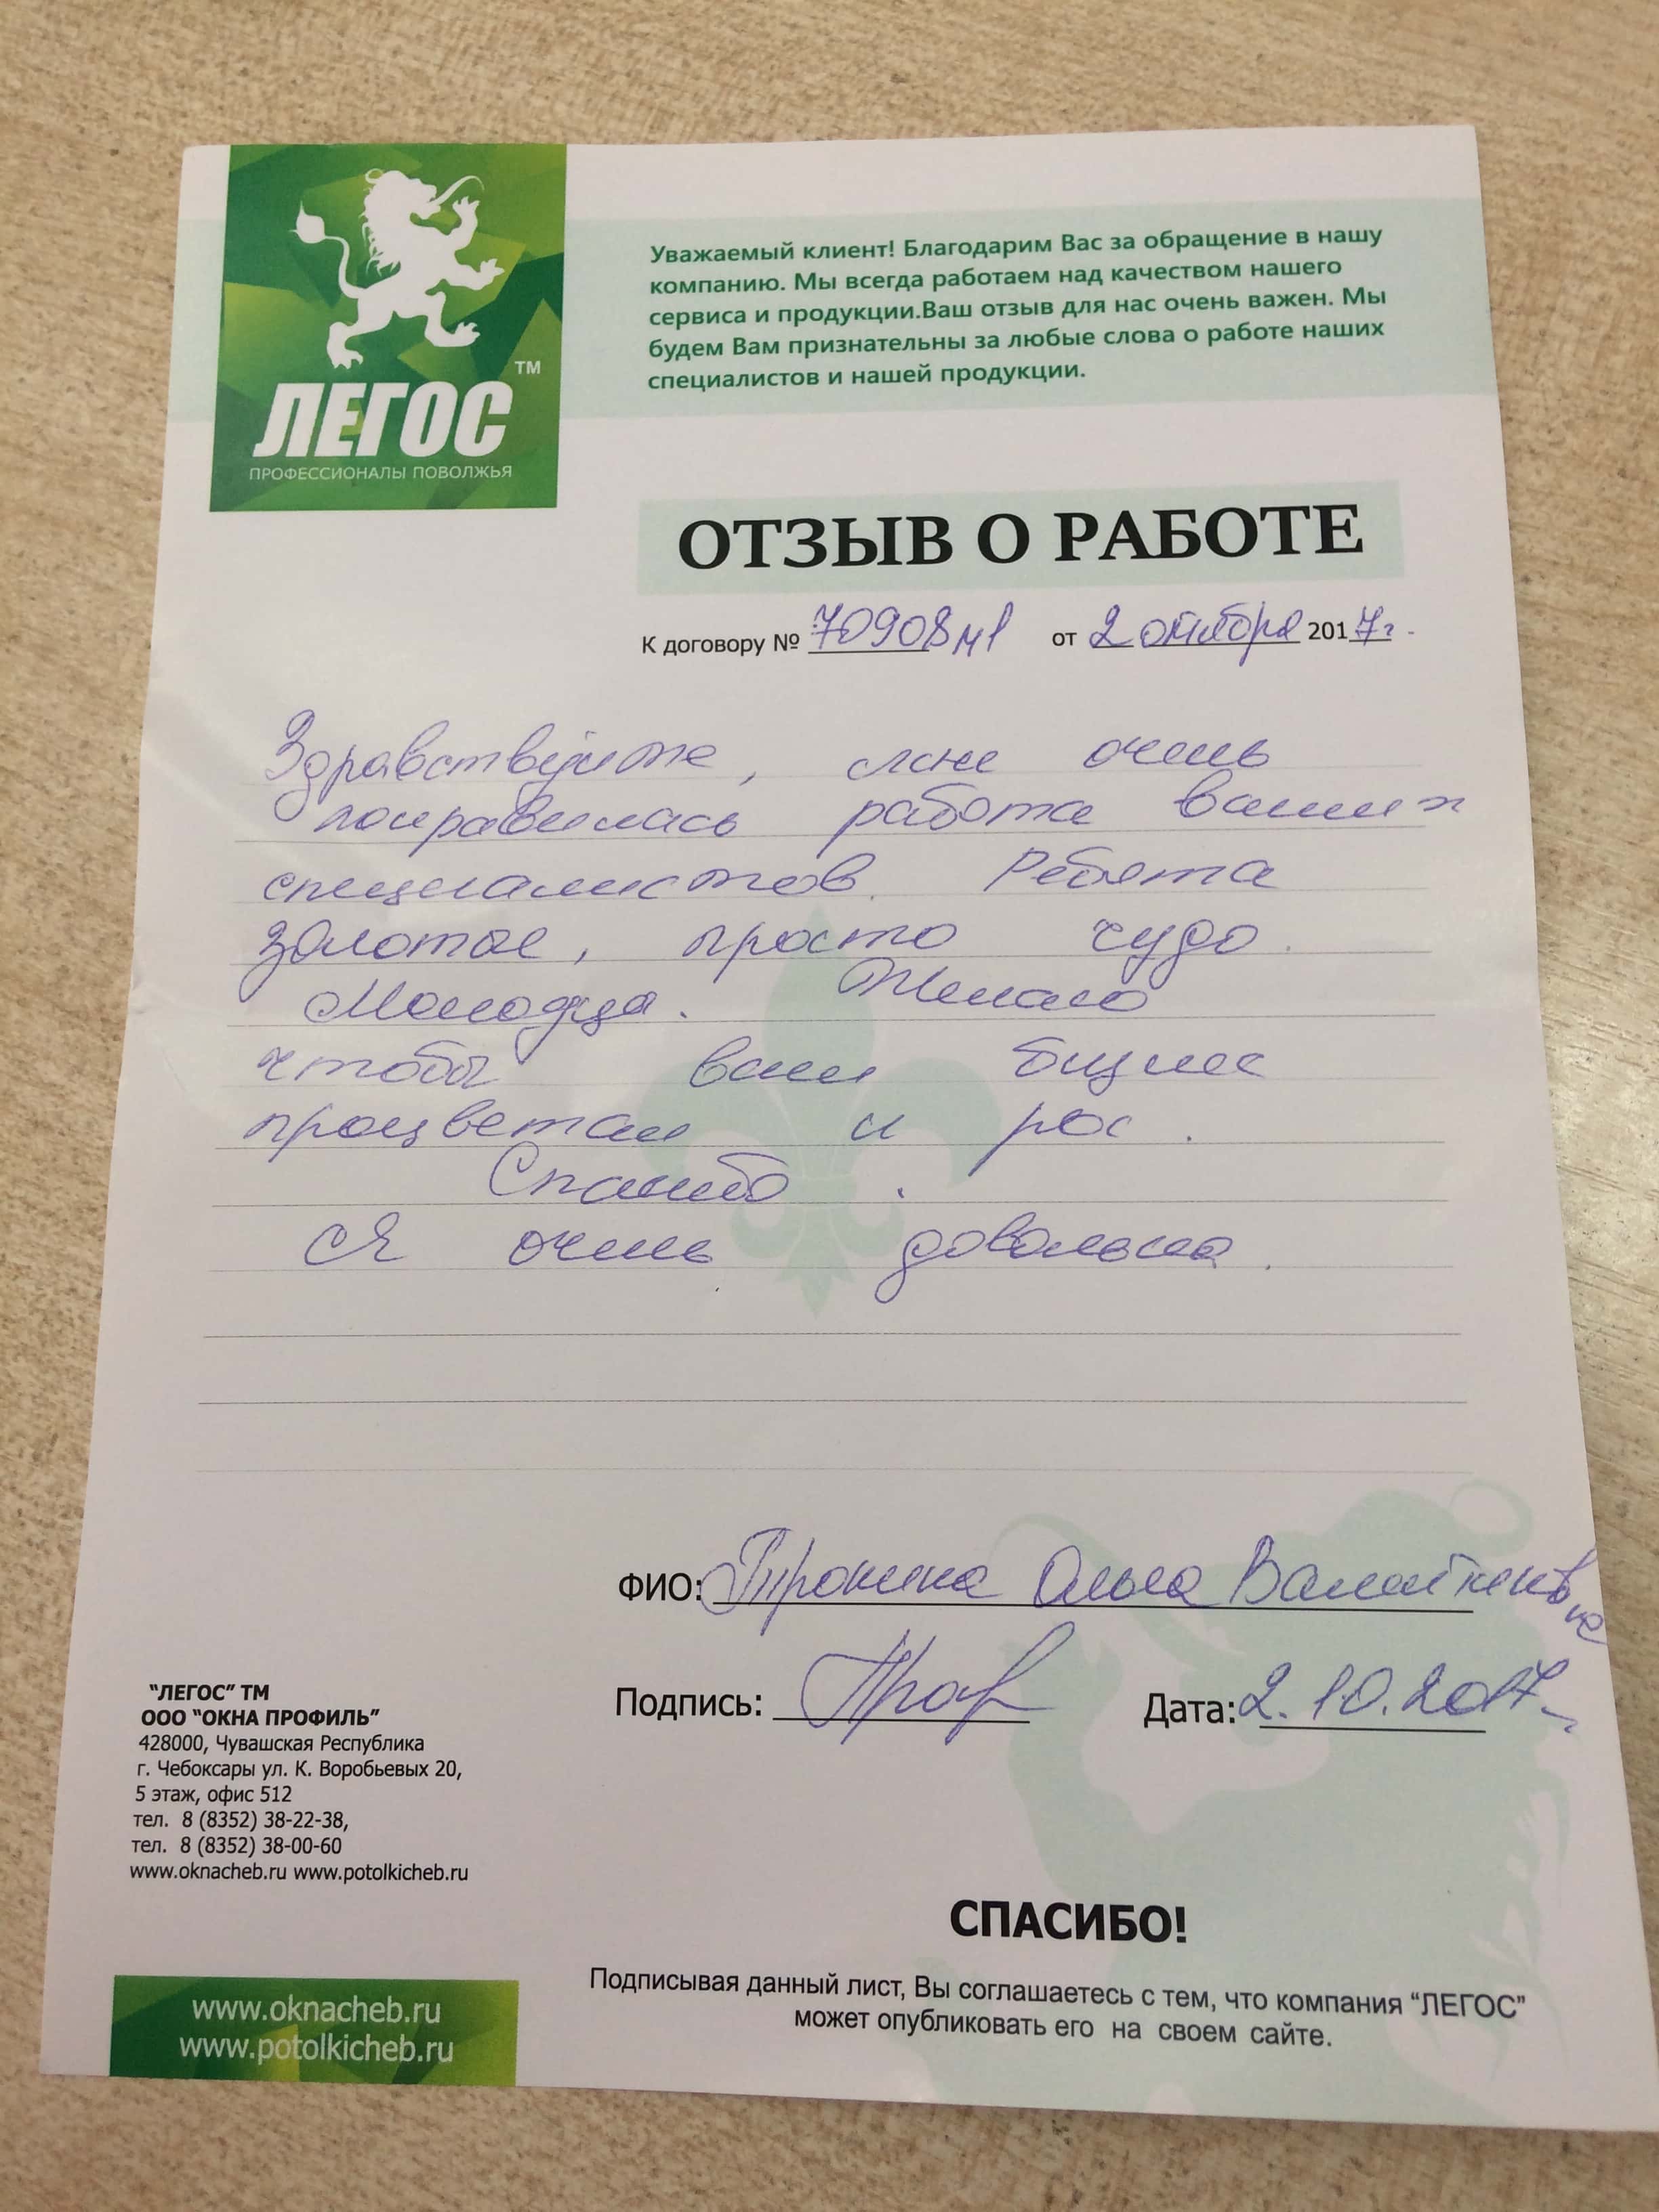 ЛЕГОС™
ПРОФЕССИОНАЛЫ ПОВОЛЖЬЯ
Уважаемый клиент! Благодарим Вас за обращение в нашу
компанию. Мы всегда работаем над качеством нашего
сервиса и продукции.Ваш отзыв для нас очень важен. Мы
будем Вам признательны за любые слова о работе наших
специалистов и нашей продукции.
ОТЗЫВ О РАБОТЕ
К договору № 70908м1 от 2 октября 2017г.
Здравствуйте, мне очень
понравилась работа ваших
специалистов. Ребята
золотые, просто чудо.
Молодцы. Желаю
чтобы ваш
процветал и рос.
Спасибо.
Я очень довольна.
ФИО: Ольга
Подпись:
Дата: 2.10.2017
"ЛЕГОС" ТМ
ООО "ОКНА ПРОФИЛЬ"
428000, Чувашская Республика
г. Чебоксары ул. К. Воробьевых 20,
5 этаж, офис 512
тел. 8 (8352) 38-22-38,
тел. 8 (8352) 38-00-60
www.oknacheb.ru www.potolkicheb.ru
СПАСИБО!
Подписывая данный лист, Вы соглашаетесь с тем, что компания "ЛЕГОС"
может опубликовать его на своем сайте.
www.oknacheb.ru
www.potolkicheb.ru